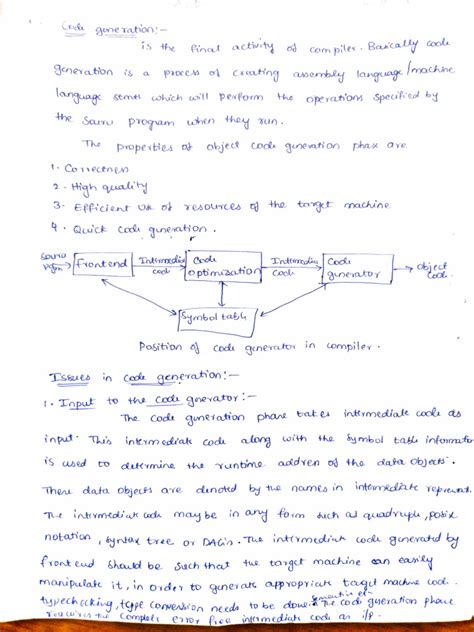 Code generation:-
is the final activity of compiler. Basically code
generation is a process of creating assembly language/machine
language stmts which will perform the operations specified by
the source program when they run.
The properties of object code generation phase are
1. Correctness
2. High quality
3. Efficient use of resources of the target machine
4. Quick code generation.
Source Pgm → Frontend → Intermediate code → Code optimization → Intermediate code → Code generator → Object code
Symbol table
Position of code generator in compiler.
Issues in code generation:-
1. Input to the code generator:-
The code generation phase takes intermediate code as
input. This intermediate code along with the symbol table information
is used to determine the runtime address of the data objects.
These data objects are denoted by the names in intermediate represent.
The intermediate code may be in any form such as quadruple, postfix
notation, syntax tree or DAG's. The intermediate code generated by
frontend should be such that the target machine can easily
manipulate it, in order to generate appropriate target machine code.
typechecking, type conversion needs to be done. The code generation phase
requires the complete error free intermediate code as i/p.